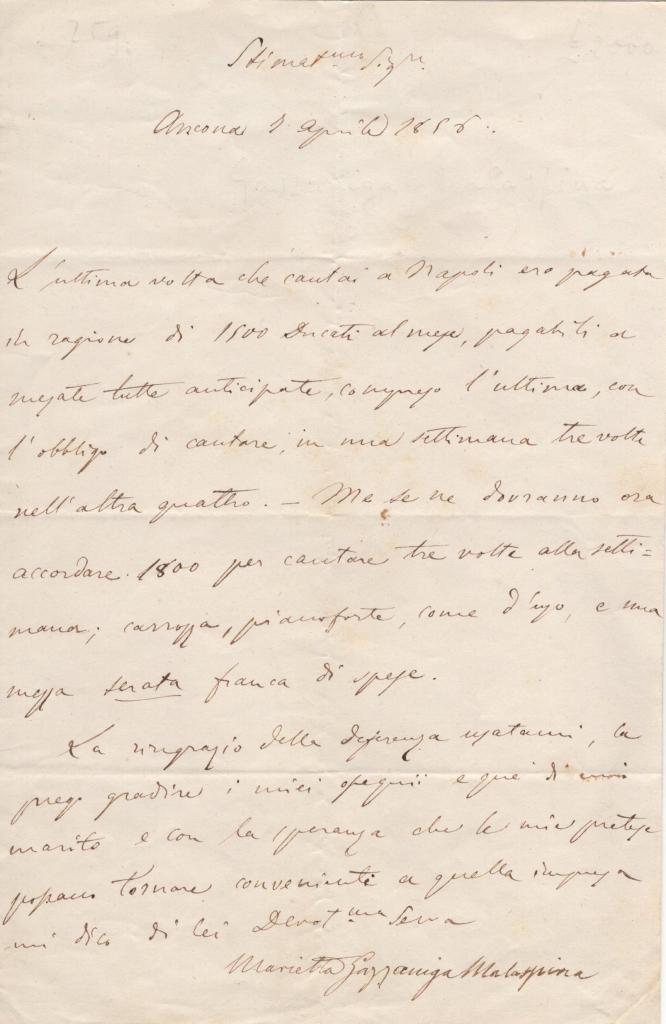 Stimat.mo Sigr.
Ancona 1 Aprile 1856.
L'ultima volta che cantai a Napoli ero pagata
in ragione di 1500 Ducati al mese, pagabili a
mesate tutte anticipate, compreso l'ultima, con
l'obbligo di cantare, in una settimana tre volte
nell'altra quattro. — Me se ne dovranno ora
accordare 1800 per cantare tre volte alla setti=
mana; carrozza, pianoforte, come d'uso, e una
mezza serata franca di spese.
La ringrazio della deferenza usatami, la
prego gradire i miei ossequii e quei di
marito e con la speranza che le mie pretese
possano tornare convenienti a quella impresa
mi dico di lei Devot.ma Serva
Marietta Gazzaniga Malaspina